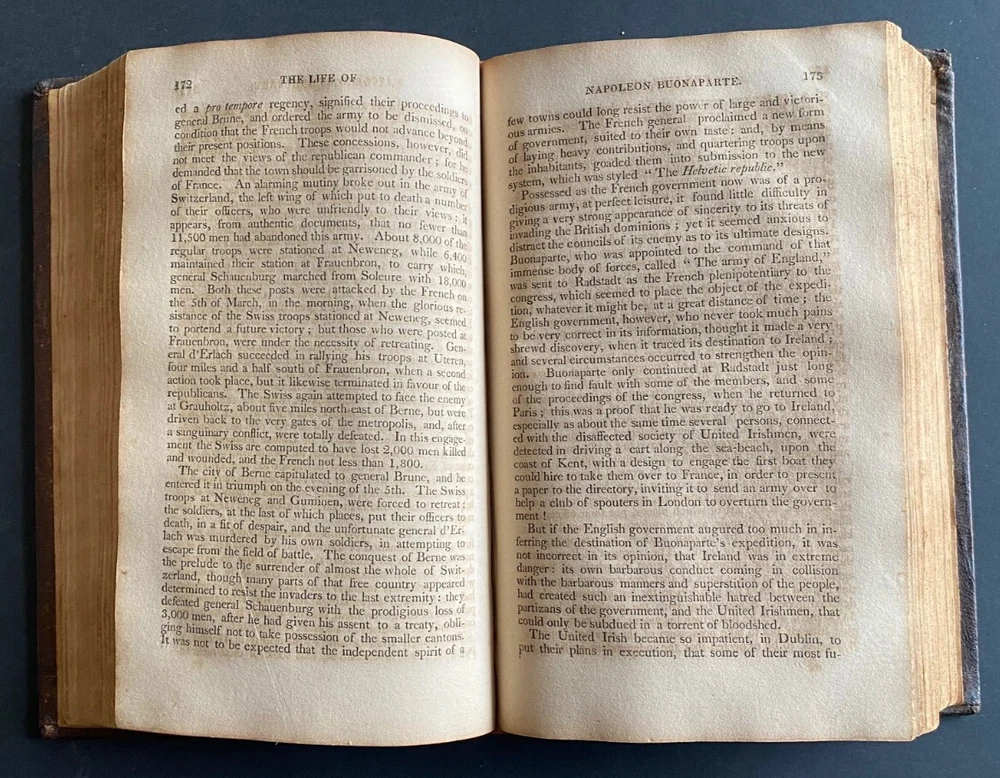 172
THE LIFE OF
ed a pro tempore regency, signified their proceedings to
general Brune, and ordered the army to be dismissed, on
condition that the French troops would not advance beyond
their present positions. These concessions, however, did
not meet the views of the republican commander; for he
demanded that the town should be garrisoned by the soldiers
of France. An alarming mutiny broke out in the army of
Switzerland, the left wing of which put to death a number
of their officers, who were unfriendly to their views: it
appears, from authentic documents, that no fewer than
11,500 men had abandoned this army. About 8,000 of the
regular troops were stationed at Neweneg, while 6,400
maintained their station at Frauenbron, to carry which,
general Schauenburg marched from Soleure with 18,000
men. Both these posts were attacked by the French on
the 5th of March, in the morning, when the glorious re-
sistance of the Swiss troops stationed at Neweneg, seemed
to portend a future victory; but those who were posted at
Frauenbron, were under the necessity of retreating. Gen-
eral d'Erlach succeeded in rallying his troops at Uteren,
four miles and a half south of Frauenbron, when a second
action took place, but it likewise terminated in favour of the
republicans. The Swiss again attempted to face the enemy
at Grauholtz, about five miles north-east of Berne, but were
driven back to the very gates of the metropolis, and, after
a sanguinary conflict, were totally defeated. In this engage-
ment the Swiss are computed to have lost 2,000 men killed
and wounded, and the French not less than 1,800.
The city of Berne capitulated to general Brune, and he
entered it in triumph on the evening of the 5th. The Swiss
troops at Neweneg and Guminen, were forced to retreat;
the soldiers, at the last of which places, put their officers to
death, in a fit of despair, and the unfortunate general d'Er-
lach was murdered by his own soldiers, in attempting to
escape from the field of battle. The conquest of Berne was
the prelude to the surrender of almost the whole of Swit-
zerland, though many parts of that free country appeared
determined to resist the invaders to the last extremity: they
defeated general Schauenburg with the prodigious loss of
3,000 men, after he had given his assent to a treaty, obli-
ging himself not to take possession of the smaller cantons.
It was not to be expected that the independent spirit of a
NAPOLEON BUONAPARTE.
173
few towns could long resist the power of large and victori-
ous armies. The French general proclaimed a new form
of government, suited to their own taste: and, by means
of laying heavy contributions, and quartering troops upon
the inhabitants, goaded them into submission to the new
system, which was styled "The Helvetic republic."
Possessed as the French government now was of a pro-
digious army, at perfect leisure, it found little difficulty in
giving a very strong appearance of sincerity to its threats of
invading the British dominions; yet it seemed anxious to
distract the councils of its enemy as to its ultimate designs.
Buonaparte, who was appointed to the command of that
immense body of forces, called "The army of England,"
was sent to Radstadt as the French plenipotentiary to the
congress, which seemed to place the object of the expedi-
tion, whatever it might be, at a great distance of time; the
English government, however, who never took much pains
to be very correct in its information, thought it made a very
shrewd discovery, when it traced its destination to Ireland;
and several circumstances occurred to strengthen the opin-
ion. Buonaparte only continued at Radstadt just long
enough to find fault with some of the members, and some
of the proceedings of the congress, when he returned to
Paris; this was a proof that he was ready to go to Ireland,
especially as about the same time several persons, connect-
ed with the disaffected society of United Irishmen, were
detected in driving a cart along the sea-beach, upon the
coast of Kent, with a design to engage the first boat they
could hire to take them over to France, in order to present
a paper to the directory, inviting it to send an army over to
help a club of spouters in London to overturn the govern-
ment!
But if the English government augured too much in in-
ferring the destination of Buonaparte's expedition, it was
not incorrect in its opinion, that Ireland was in extreme
danger: its own barbarous conduct coming in collision
with the barbarous manners and superstition of the people,
had created such an inextinguishable hatred between the
partizans of the government, and the United Irishmen, that
could only be subdued in a torrent of bloodshed.
The United Irish became so impatient, in Dublin, to
put their plans in execution, that some of their most fu-